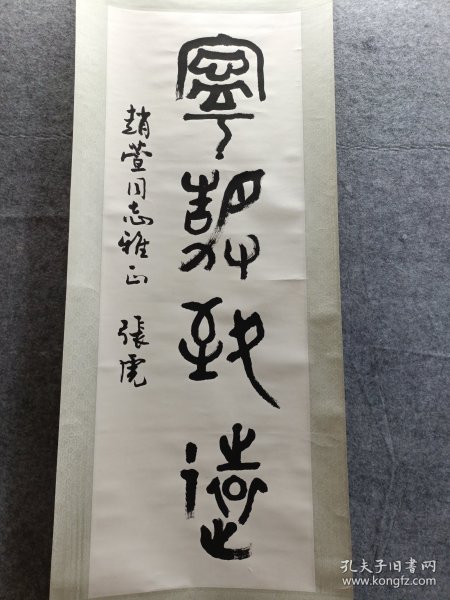 寧静致遠
趙萱同志雅正 張虎
孔夫子旧书网
www.kongfz.com